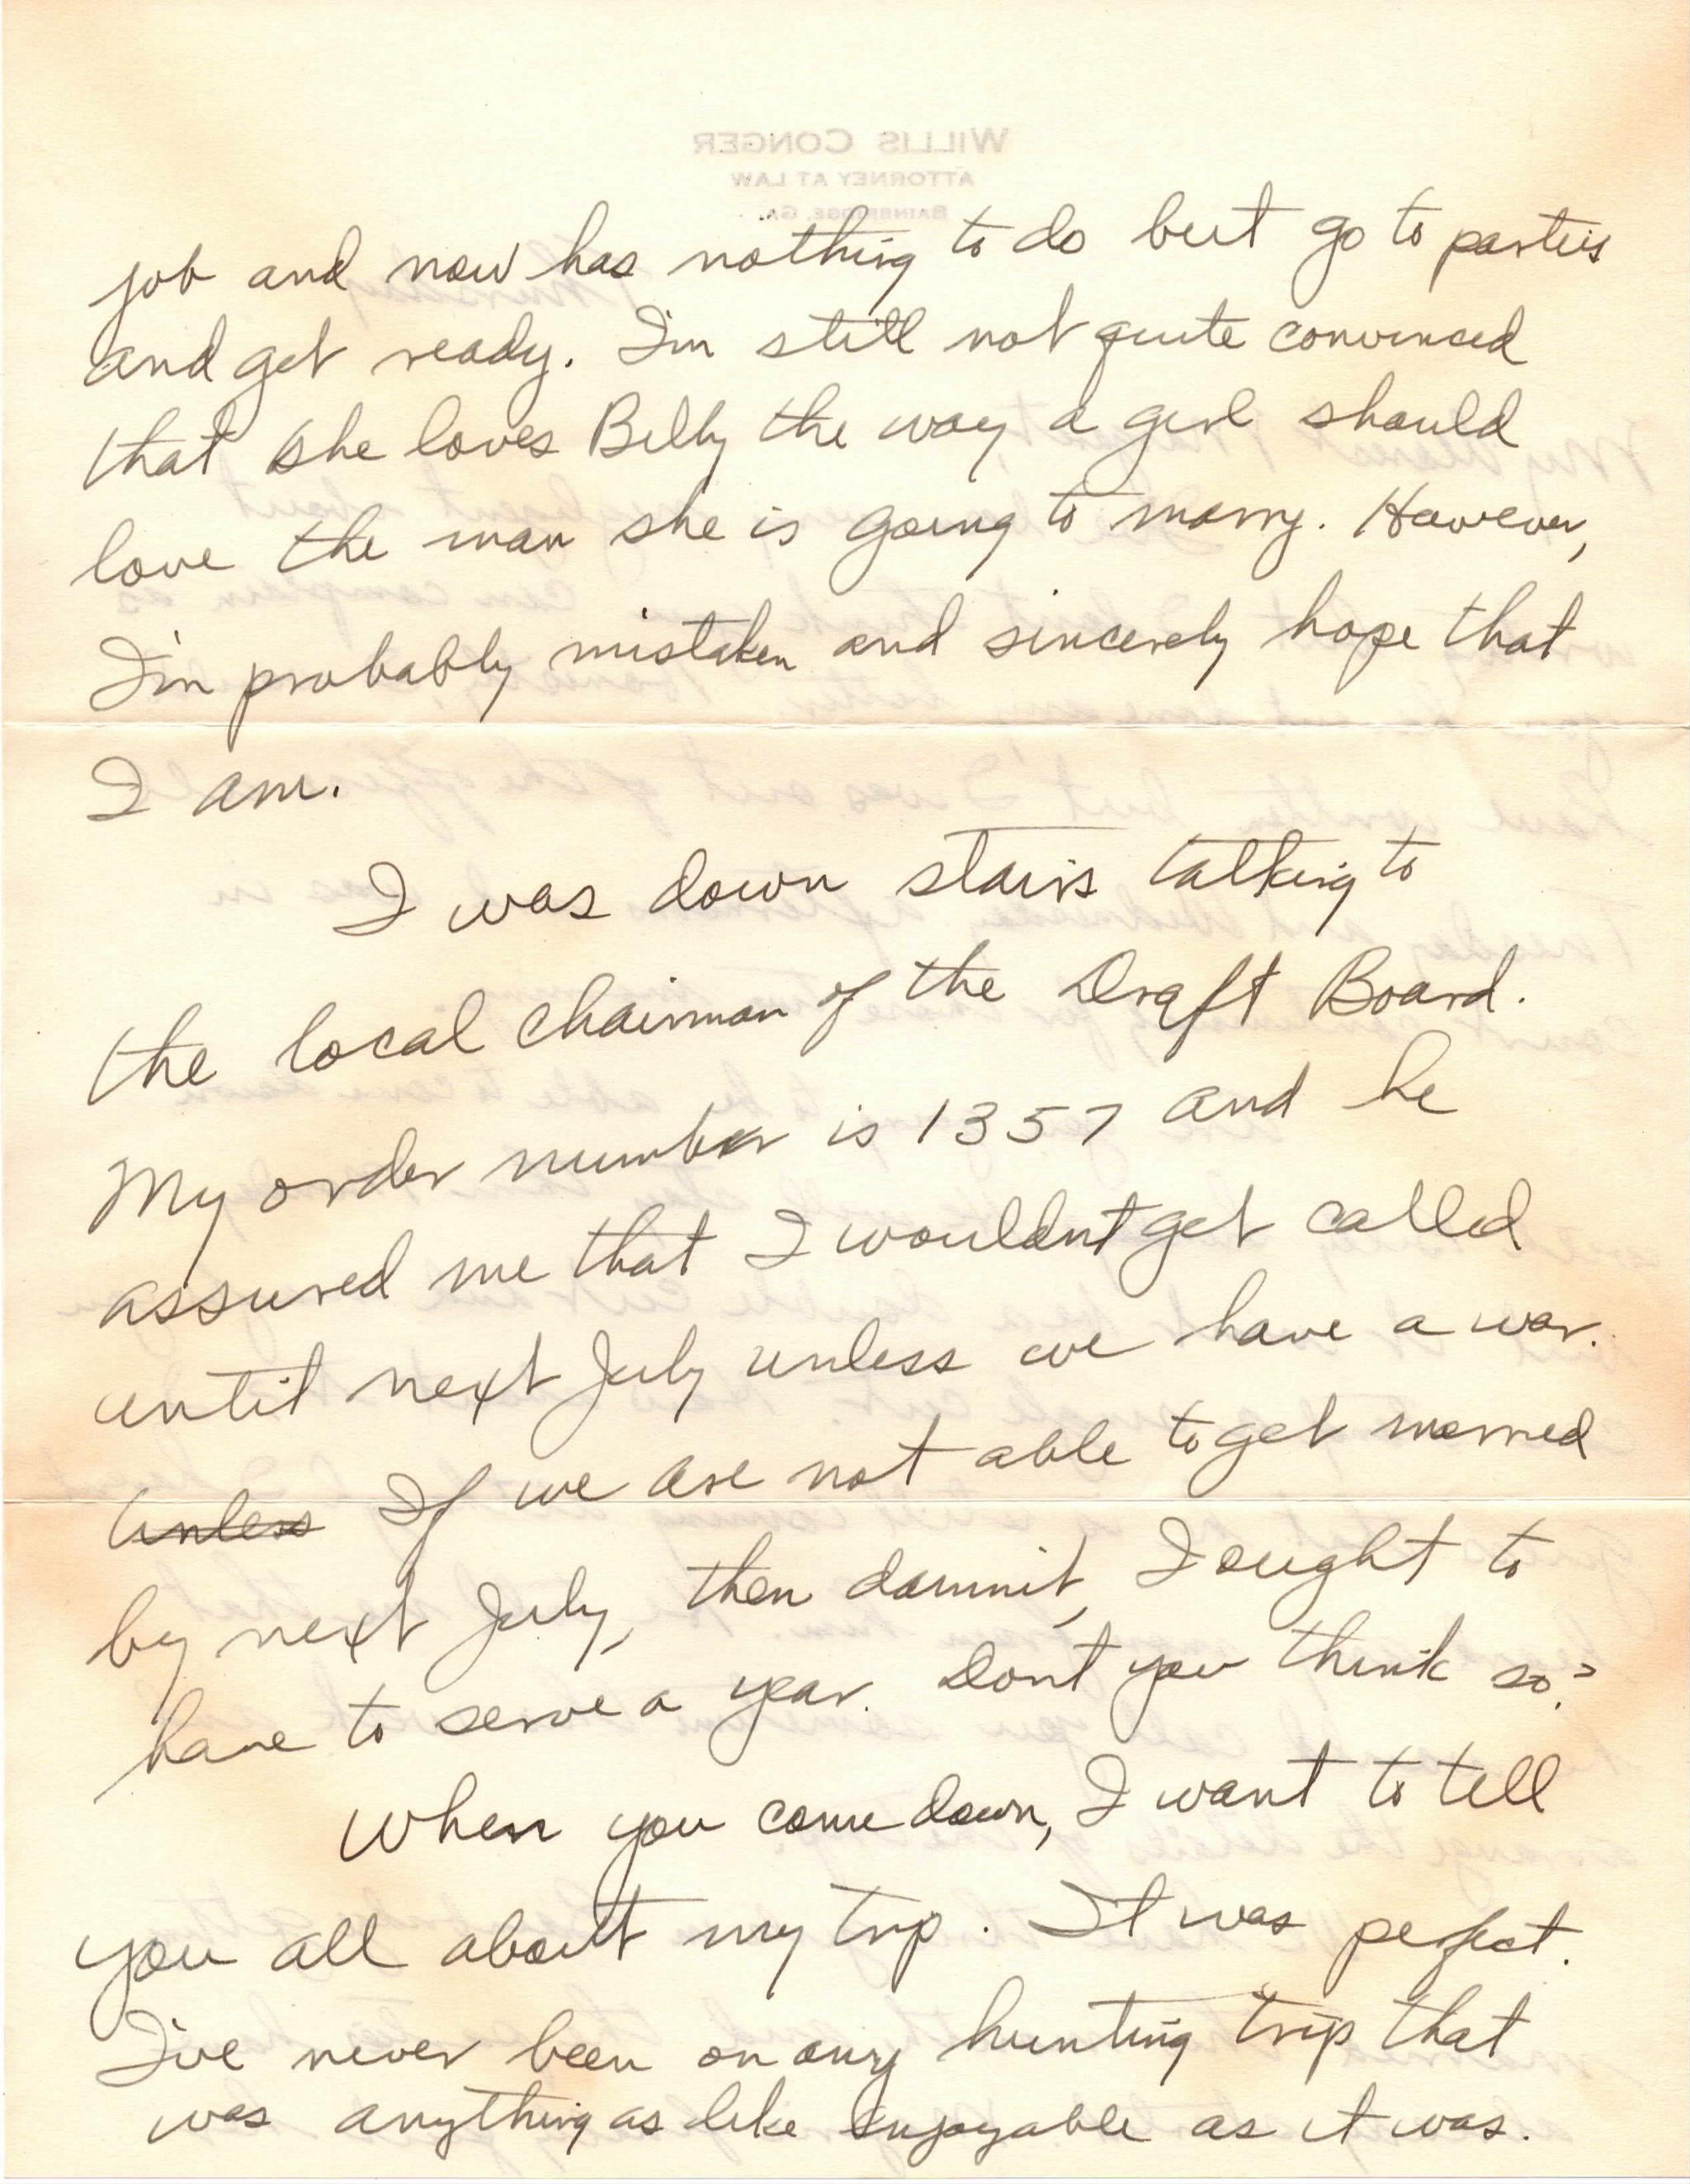 WILLIS CONGER
ATTORNEY AT LAW
BAINBRIDGE, GA.
job and now has nothing to do but go to parties
and get ready. I'm still not quite convinced
that she loves Billy the way a girl should
love the man she is going to marry. However,
I'm probably mistaken and sincerely hope that
I am.
I was down stairs talking to
the local chairman of the Draft Board.
My order number is 1357 and he
assured me that I wouldnt get called
until next July unless we have a war.
Unless If we are not able to get married
by next July, then damnit, I ought to
have to serve a year. Dont you think so?
When you come down, I want to tell
you all about my trip. It was perfect.
I've never been on any hunting trip that
was anything as like enjoyable as it was.